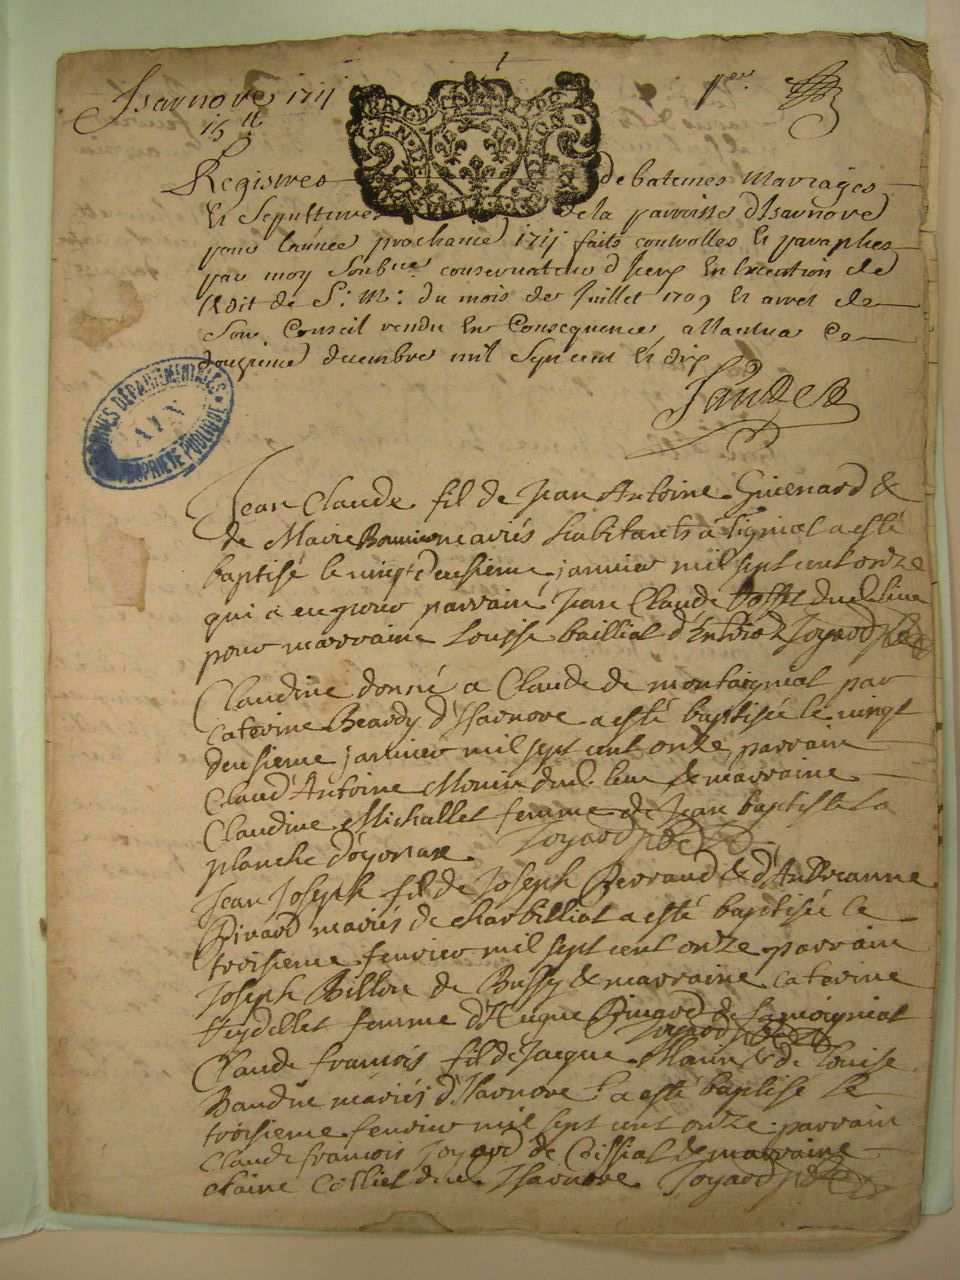 Isarnore 1711
1er
15 ft
GEN DE
Registres de batemes Mariages
Et Sepultures de la parroisse d'Isarnore
pour l'année prochaine 1711 faits controlles Et paraphes
par moy Soubne conservateur d'Iceux En Execution de
l'Edit de S: M: du mois de Juillet 1709 Et arret de
Son Conseil rendu En Consequence a Nantua Ce
douzieme decembre mil Sept cent Et dix
ARCHIVES DÉPARTEMENTALES
AIN
PROPRIÉTÉ PUBLIQUE
Jean Claude fil de Jean Antoine Guienard &
de Marie mariés habitants à Tigniat a esté
baptisé le vingt deusieme janvier mil sept cent onze
qui a eu pour parrain Jean Claude dud. lieu
pour marraine Louise bailliat Joyard
Claudine donné a Claude de montaigniat par
Caterine Beardy d'Isarnore a esté baptisée le vingt
deusieme janvier mil sept cent onze, parrain
Claud'Antoine Monin dud. lieu & marraine
Claudine Michallet femme de Jean baptiste La
planche d'oyonax Joyard
Jean Joseph fil de Joseph Perraud & d'Andreanne
Pivard mariés de Charbilliat a esté baptisée le
troisieme fevrier mil sept cent onze parrain
Joseph Billon de Bussy & marraine Caterine
Heydellet femme d'Hugue de Samoigniat
Joyard
Claude francois fil de Jacque & de Louise
mariés d'Isarnore a esté baptisé Le
troisieme fevrier mil sept cent onze parrain
Claude francois Joyard de Ceissiat & marraine
Claine Colliet dud. Isarnore Joyard